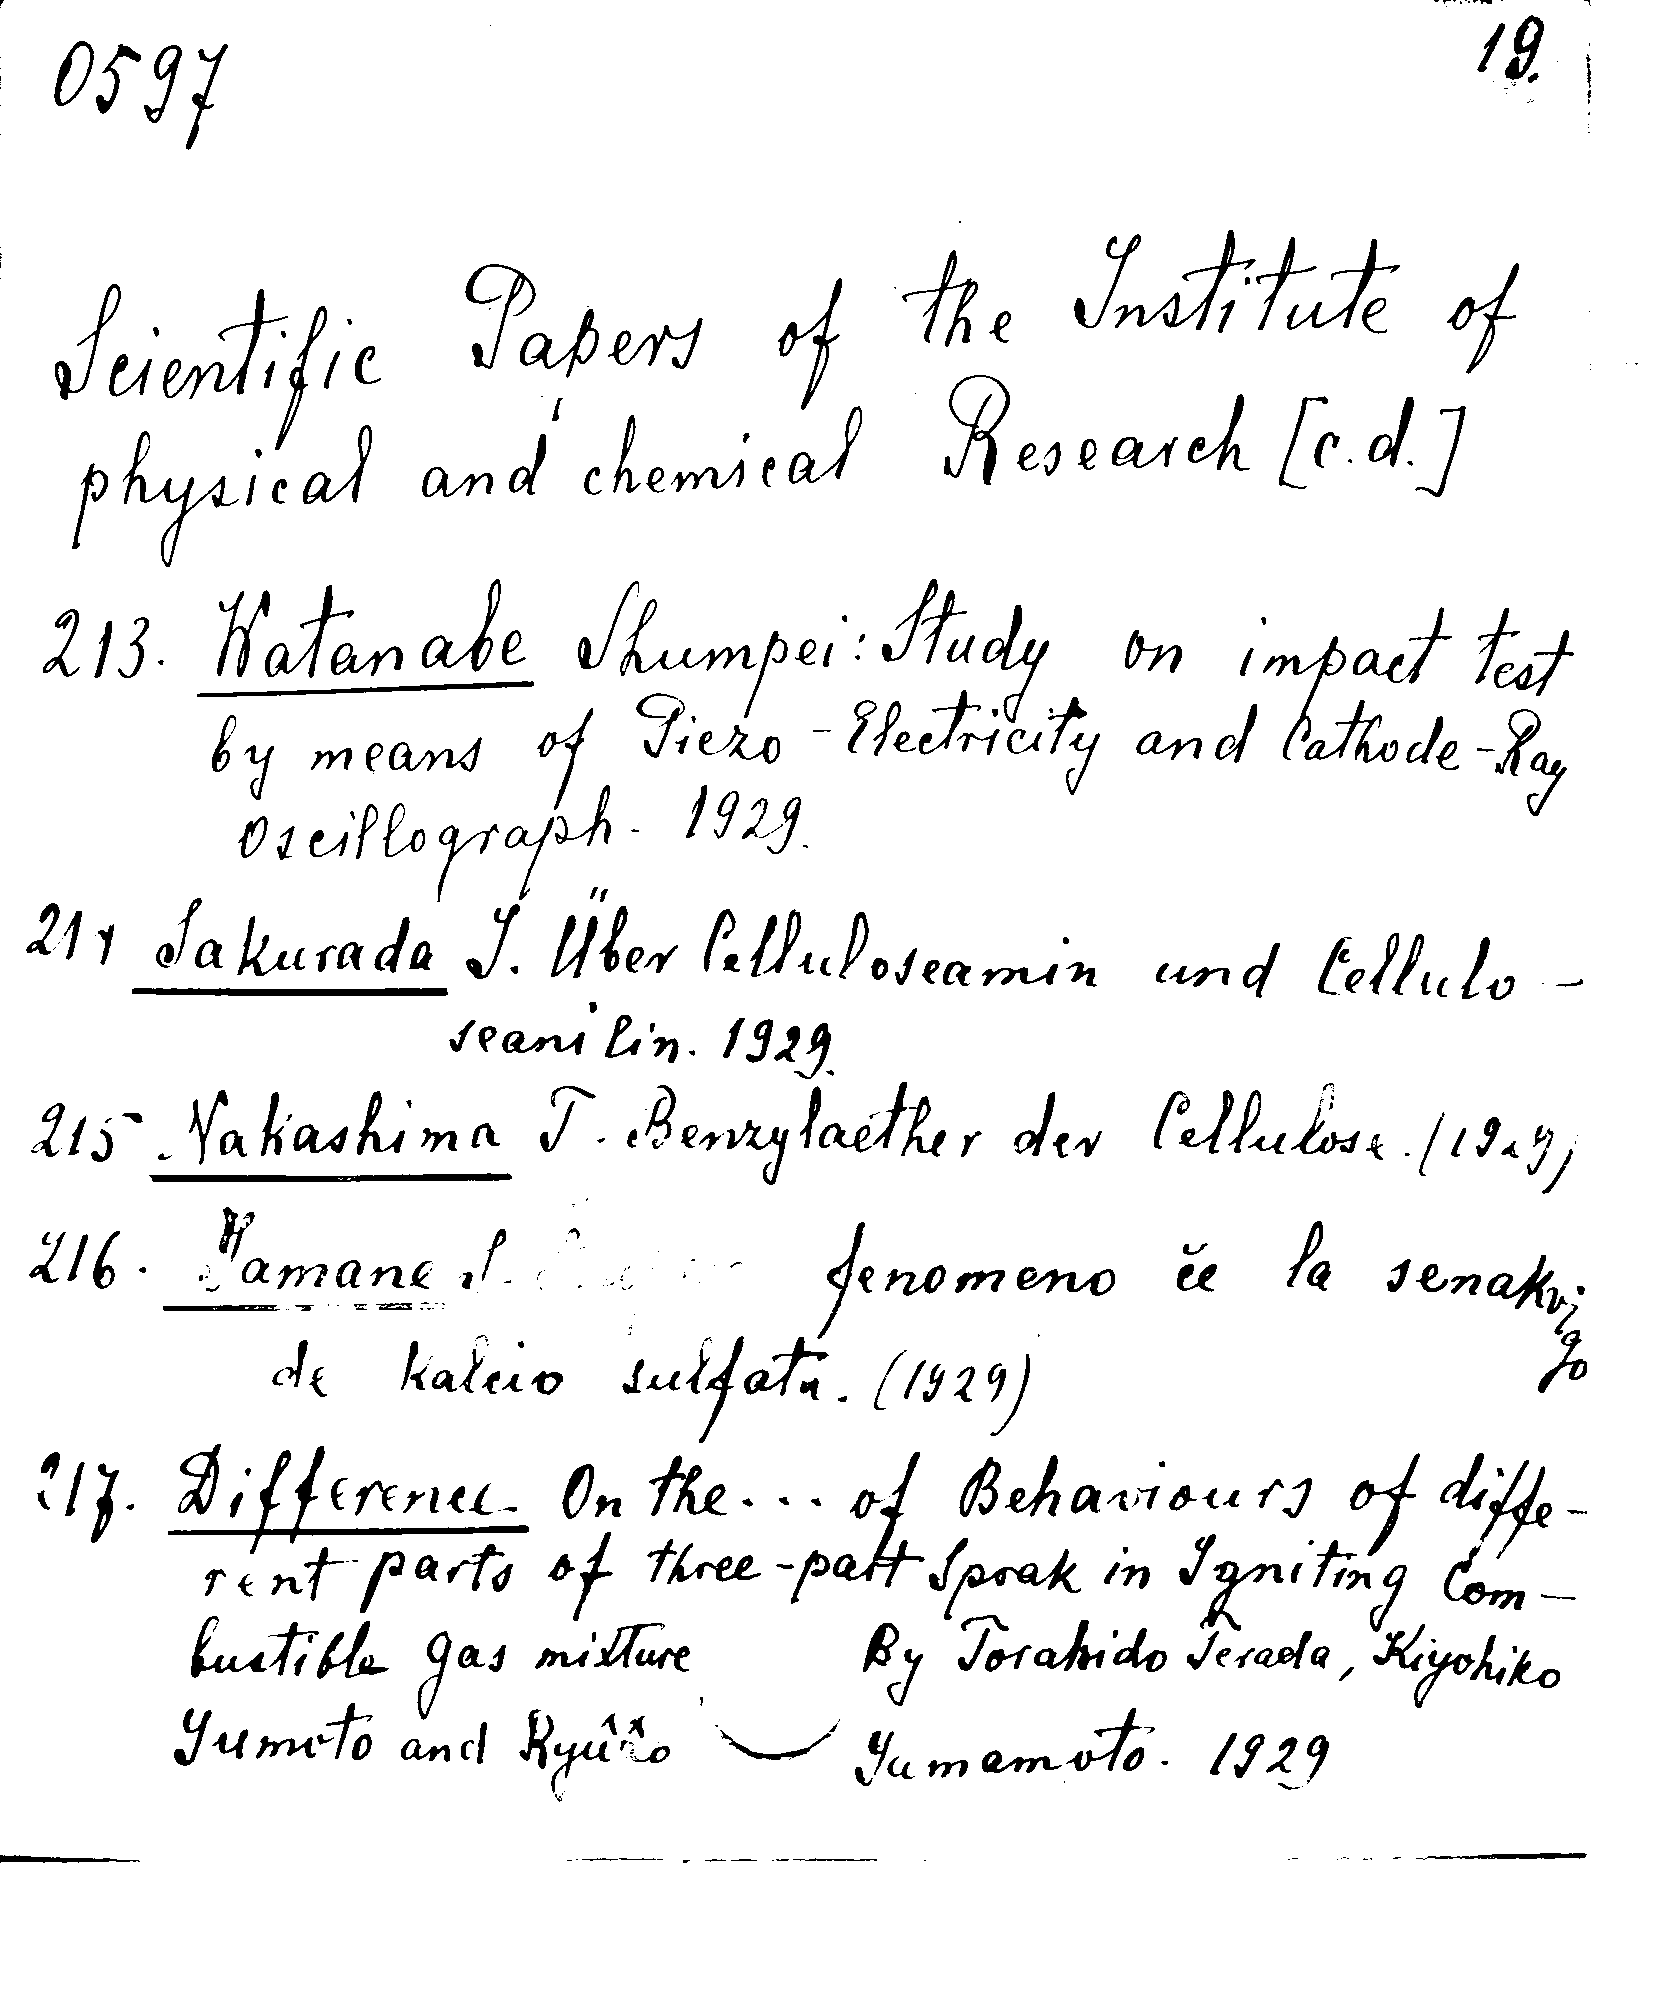 0597
19.
Scientific Papers of the Institute of
physical and chemical Research [c.d.]
213. Watanabe Shumpei: Study on impact test
by means of Piezo-Electricity and Cathode-Ray
Oscillograph. 1929.
214 Sakurada I. Über Celluloseamin und Cellulo-
seanilin. 1929.
215 Nakashima T. Benzylaether der Cellulose. (1929)
216. Yamane S. fenomeno ĉe la senakvigo
de kalcio sulfata. (1929)
217. Difference On the... of Behaviours of diffe-
rent parts of three-part Sprak in Igniting Com-
bustible gas mixture By Torahido Terada, Kiyohiko
Yumoto and Yumamoto. 1929